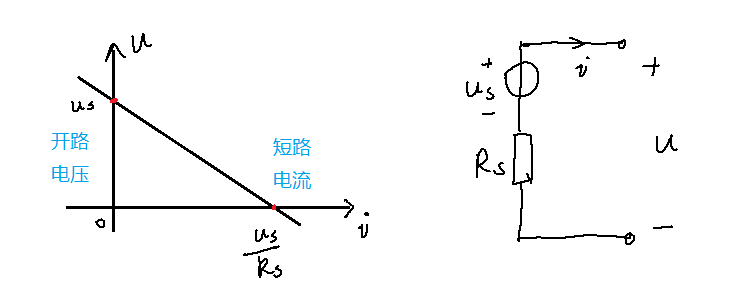 u
us
开路
电压
短路
电流
0
i
us
Rs
i
+
us
-
Rs
+
u
-